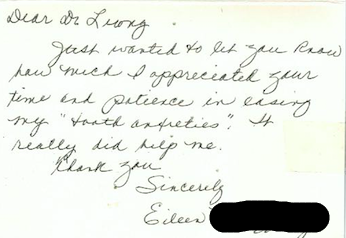 Dear Dr Leong.
Just wanted to let you know
how much I appreciated your
time and patience in easing
my "tooth anxieties". It
really did help me.
Thank you
Sincerely
Eileen